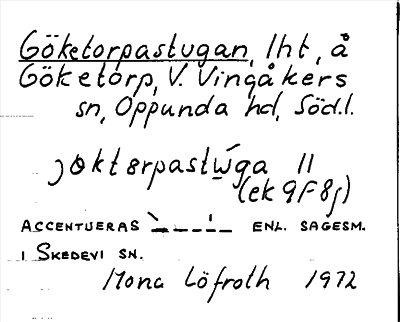 Göketorpastugan, lht, å
Göketorp, V. Vingåkers
sn, Oppunda hd, Söd.l.
jøktørpastẃga 11
(ek 9F8j)
ACCENTUERAS ENL. SAGESM.
I SKEDEVI SN.
Mona Löfroth 1972